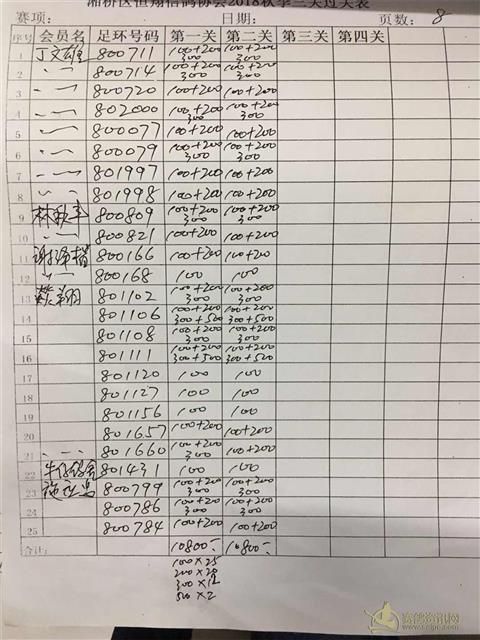 湘桥区恒翔信鸽协会2018秋季三关过关表
赛项: 日期: 页数: 8
序号 会员名 足环号码 第一关 第二关 第三关 第四关
1 丁文雄 800711 100+200 300 100+200 300
2 〃 800714 100+200 300 100+200 300
3 〃 800720 100+200 100+200
4 〃 802000 100+200 300 100+200 300
5 〃 800077 100+200 100+200
6 〃 800079 100+200 300 100+200 300
7 〃 801997 100+200 100+200
8 〃 801998 100+200 100+200
9 800809 100+200 300 100+200 300
10 〃 800821 100+200 100+200
11 800166 100+200 100+200
12 〃 800168 100 100
13 801102 100+200 300 100+200 300
14 801106 100+200 300+500 100+200 300+500
15 801108 100+200 300 100+200 300
16 801111 100+200 300+500 100+200 300+500
17 801120 100 100
18 801127 100 100
19 801156 100 100
20 801657 100+200 100+200
21 〃 801660 100+200 300 100+200
22 801431 100 100
23 800799 100+200 300 100+200 300
24 800786 100+200 300 100+200 300
25 800784 100+200 100+200
合计: 10800- 10800-
100×25
300×12
500×2
赛鸽资讯网